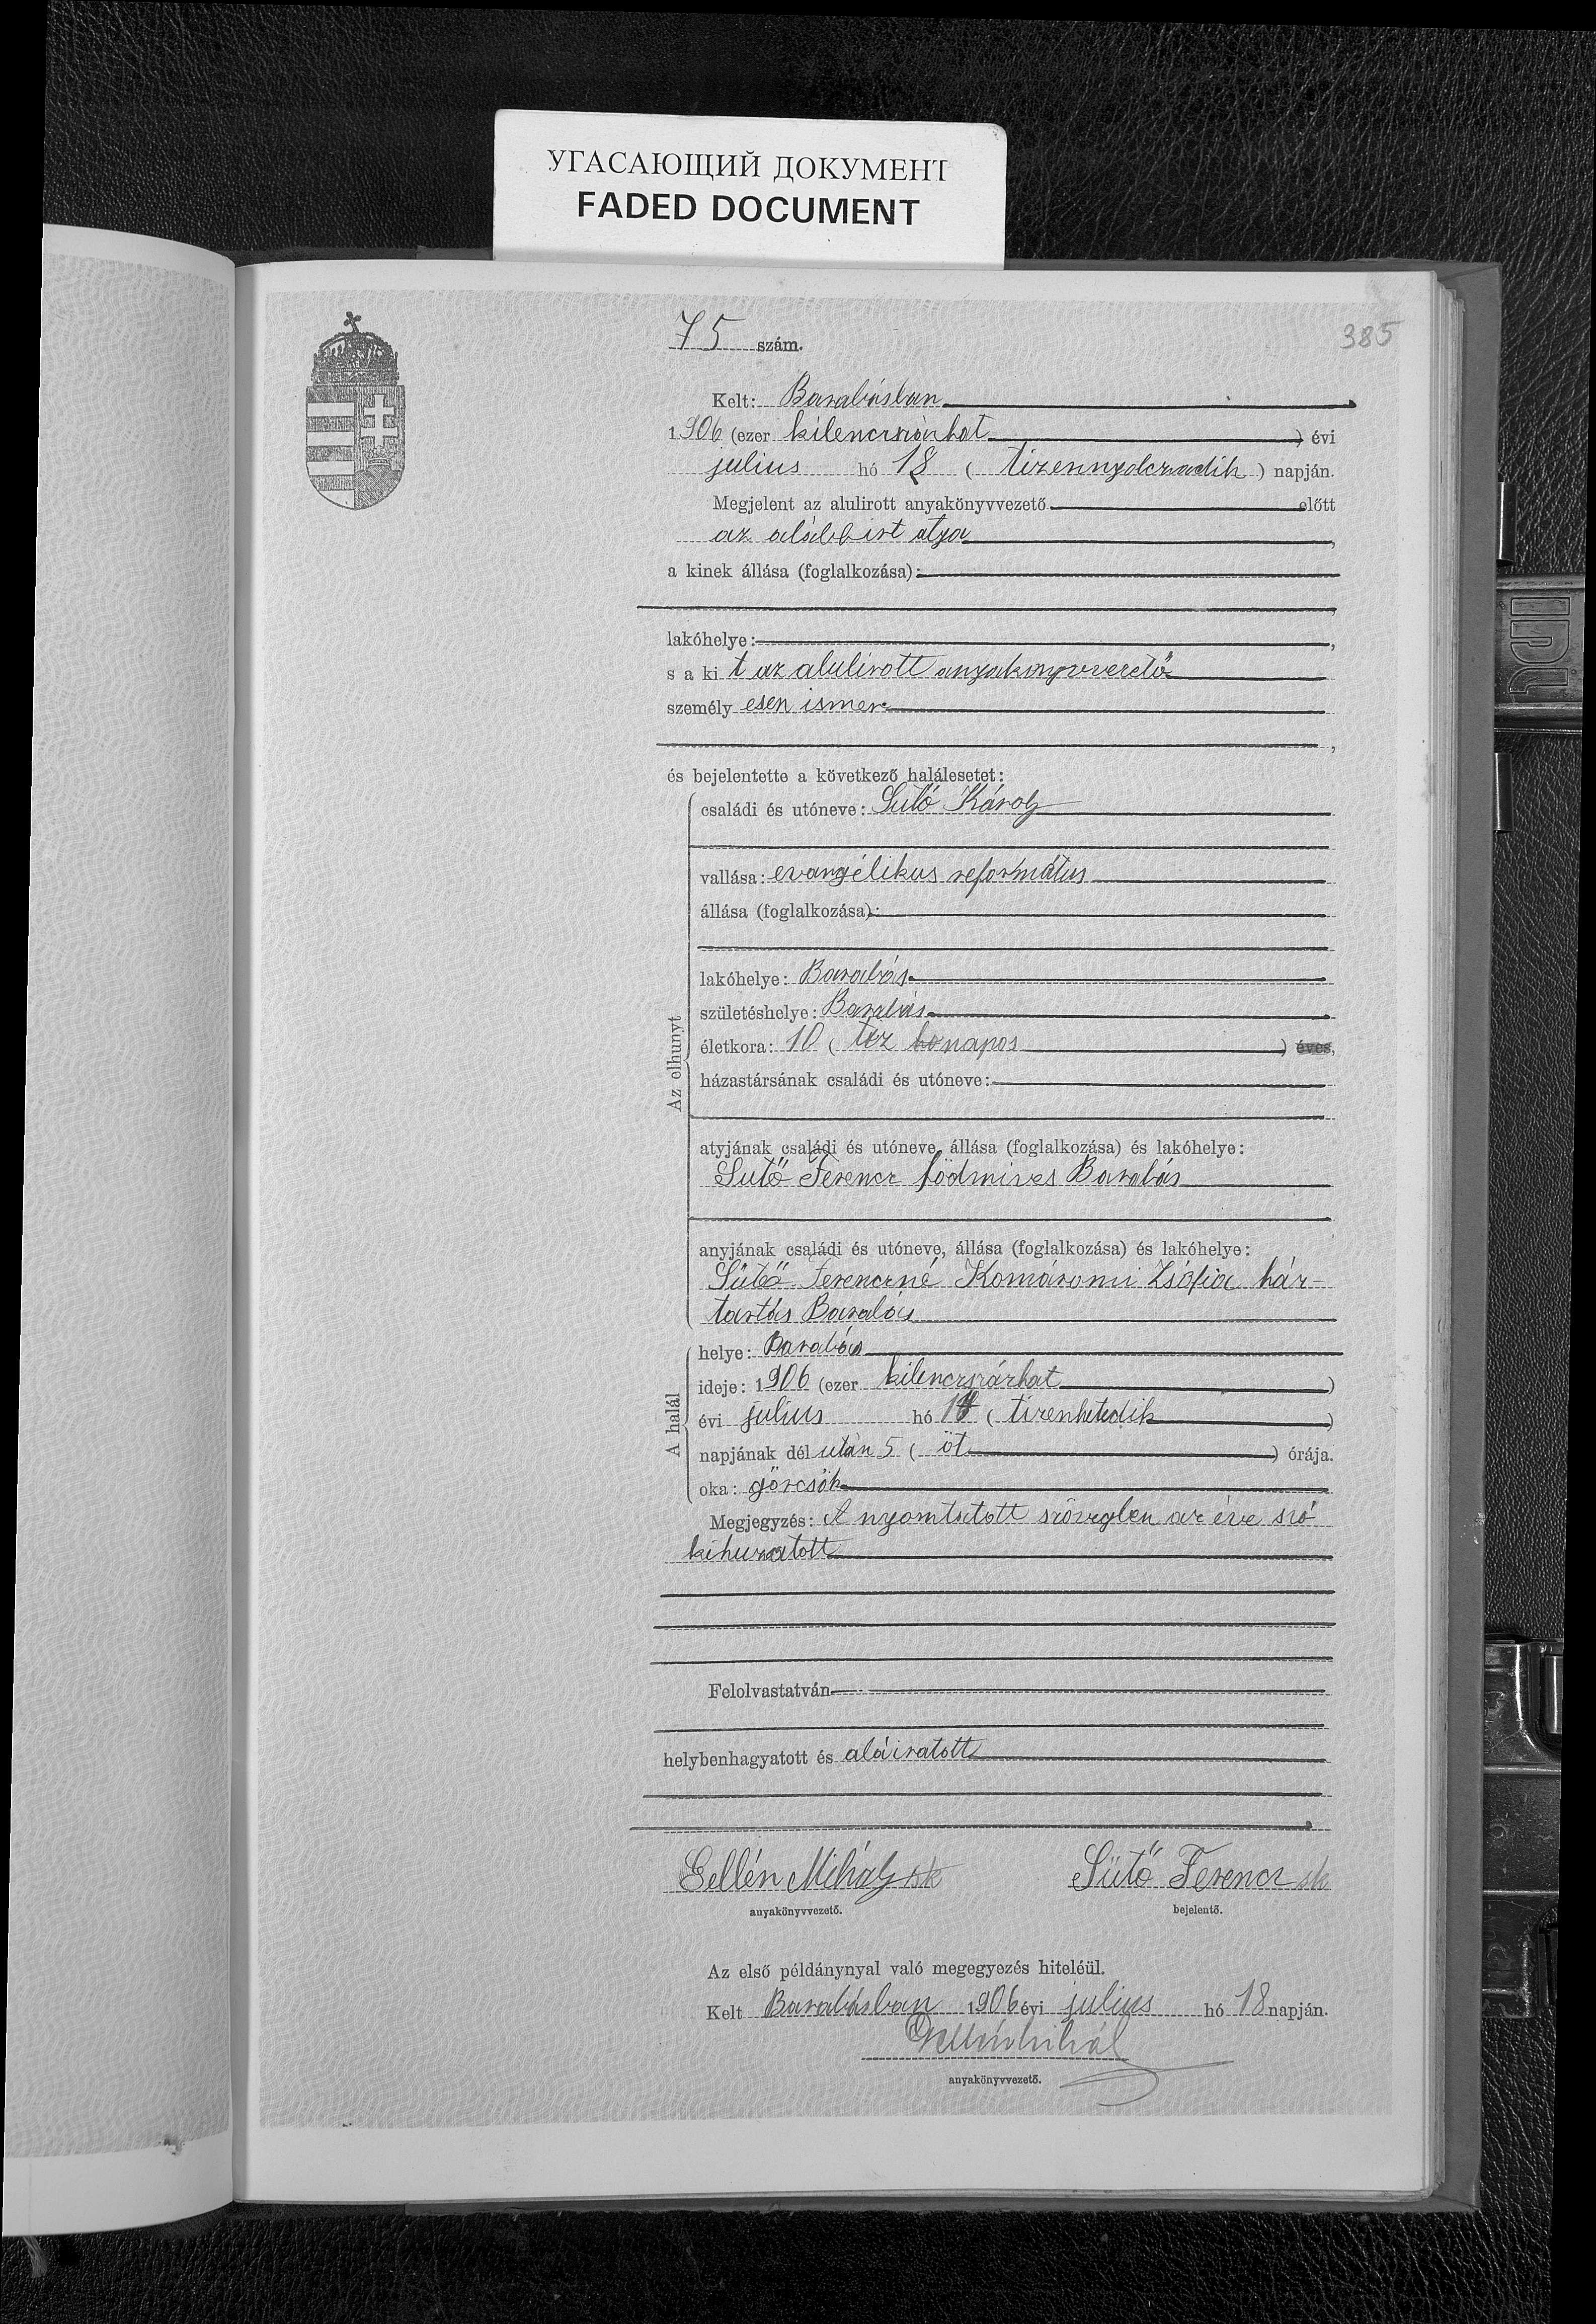 УГАСАЮЩИЙ ДОКУМЕНТ
FADED DOCUMENT
385
75 szám.
Kelt: Barabásban
1906 (ezer kilenczszázhat) évi
julius hó 18 (tizennyolczadik) napján.
Megjelent az alulirott anyakönyvvezető előtt
az alább irt atya,
a kinek állása (foglalkozása):
lakóhelye:,
s a kit az alulirott anyakönyvvezető
személyesen ismer
,
és bejelentette a következő halálesetet:
Az elhunyt
családi és utóneve: Sütő Károly
vallása: evangélikus református
állása (foglalkozása):
lakóhelye: Barabás
születéshelye: Barabás
életkora: 10 (tiz hónapos) éves,
házastársának családi és utóneve:
atyjának családi és utóneve, állása (foglalkozása) és lakóhelye:
Sütő Ferencz födmives Barabás
anyjának családi és utóneve, állása (foglalkozása) és lakóhelye:
Sütő Ferenczné Komáromi Zsófia ház-
tartás Barabás
A halál
helye: Barabás
ideje: 1906 (ezer kilenczszázhat)
évi julius hó 17 (tizenhetedik)
napjának dél után 5 (öt) órája.
oka: görcsök
Megjegyzés: A nyomtatott szövegben az éve szó
kihuzatott
Felolvastatván
helybenhagyatott és aláiratott
Gellén Mihály sk
Sütő Ferencz sk
anyakönyvvezető.
bejelentő.
Az első példánynyal való megegyezés hiteléül.
Kelt Barabásban 1906 évi julius hó 18 napján.
Gellén Mihál
anyakönyvvezető.